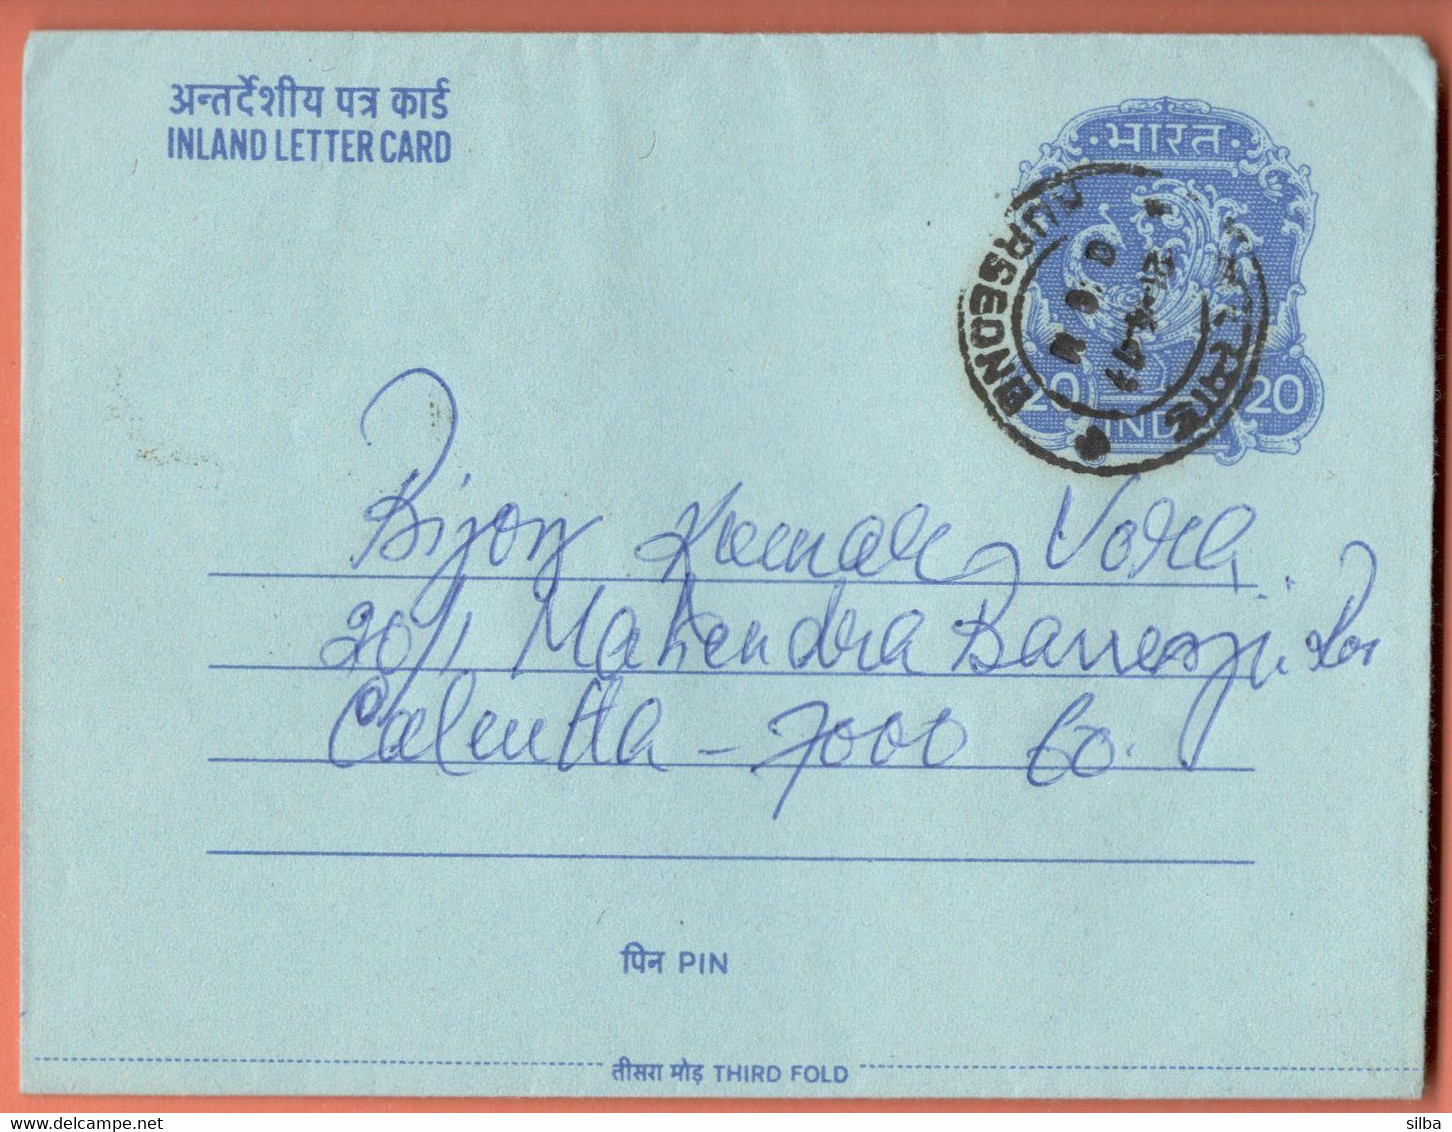 अन्तर्देशीय पत्र कार्ड
INLAND LETTER CARD
भारत
20 20
INDIA
Bijoy Kumar Vora
20/1 Mahendra Banerji Rd
Calcutta - 7000 60.
पिन PIN
तीसरा मोड़ THIRD FOLD
www.delcampe.net
silba